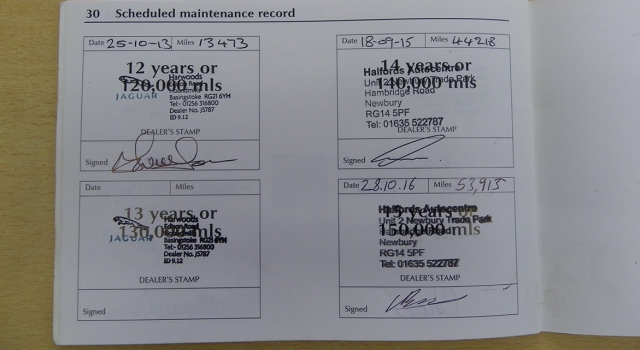 30 Scheduled maintenance record
Date 25-10-13 Miles 13473
12 years or
120,000 mls
Harwoods
JAGUAR
Basingstoke RG21 6YH
Tel:- 01256 316800
Dealer No. J5787
ED 9.12
DEALER'S STAMP
Signed
Date 18-09-15 Miles 44218
14 years or
140,000 mls
Halfords Autocentre
Unit 2 Newbury Trade Park
Hambridge Road
Newbury
RG14 5PF
Tel: 01635 522787
DEALER'S STAMP
Signed
Date Miles
13 years or
130,000 mls
Harwoods
JAGUAR
Basingstoke RG21 6YH
Tel:- 01256 316800
Dealer No. J5787
ED 9.12
DEALER'S STAMP
Signed
Date 28.10.16 Miles 53,913
15 years or
150,000 mls
Halfords Autocentre
Unit 2 Newbury Trade Park
Hambridge Road
Newbury
RG14 5PF
Tel: 01635 522787
DEALER'S STAMP
Signed